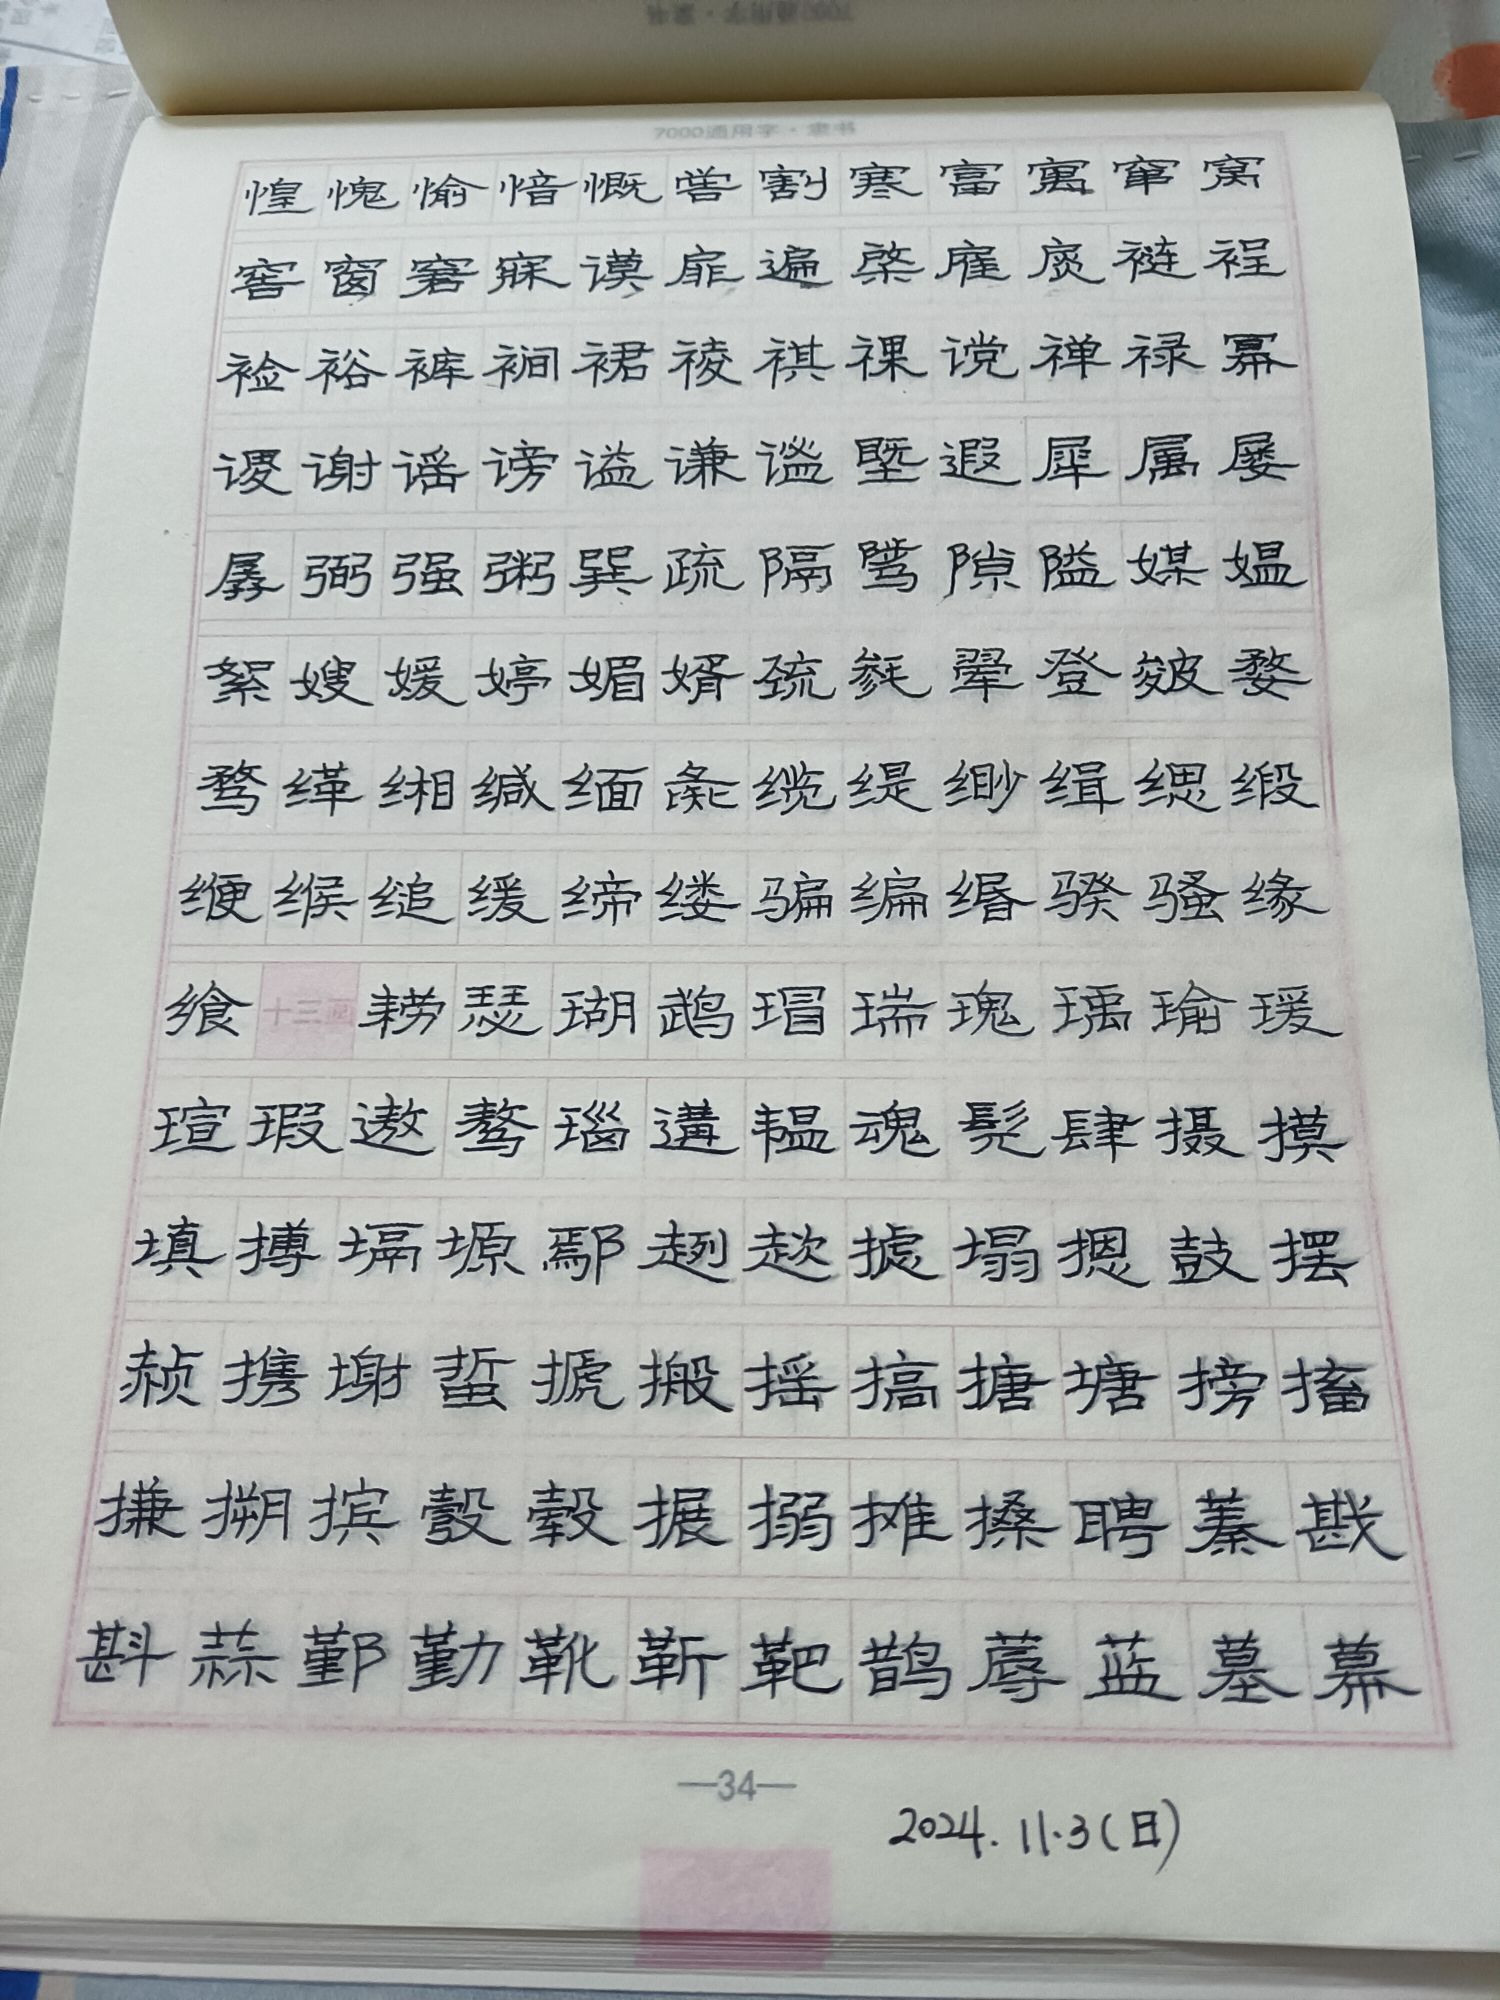 7000通用字·隶书
惶愧愉愔慨喾割寒富寓窜窝
窖窗窘寐谟扉遍棨雇扊裢裎
裣裕裤裥裙祾祺祼谠禅禄幂
谡谢谣谤谥谦谧塈遐犀属屡
孱弼强粥巽疏隔骘隙隘媒媪
絮嫂媛婷媚婿巯毵翚登皴婺
骛缂缃缄缅彘缆缇缈缉缌缎
缏缑缒缓缔缕骗编缗骙骚缘
飨十三画耢瑟瑚鹉瑁瑞瑰瑀瑜瑗
瑄瑕遨骜瑙遘韫魂髡肆摄摸
填搏塥塬鄢趔趑摅塌摁鼓摆
赪携塮蜇搋搬摇搞搪塘搒搐
搛搠摈彀毂搌搦摊搡聘蓁戡
斟蒜鄞勤靴靳靶鹊蓐蓝墓幕
—34—
2024.11.3(日)